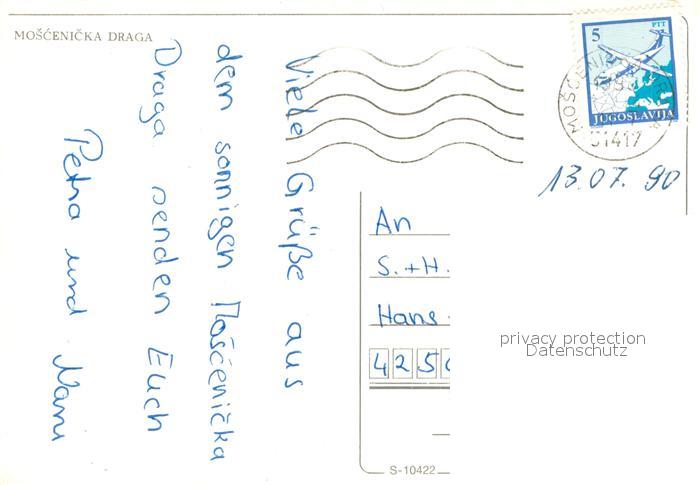 MOŠĆENIČKA DRAGA
Viele Grüße aus
dem sonnigen Mošćenička
Draga senden Euch
Petra und Mani
5
PTT
JUGOSLAVIJA
51417
13.07. 90
An
S. + H.
Hans
425
privacy protection
Datenschutz
S-10422